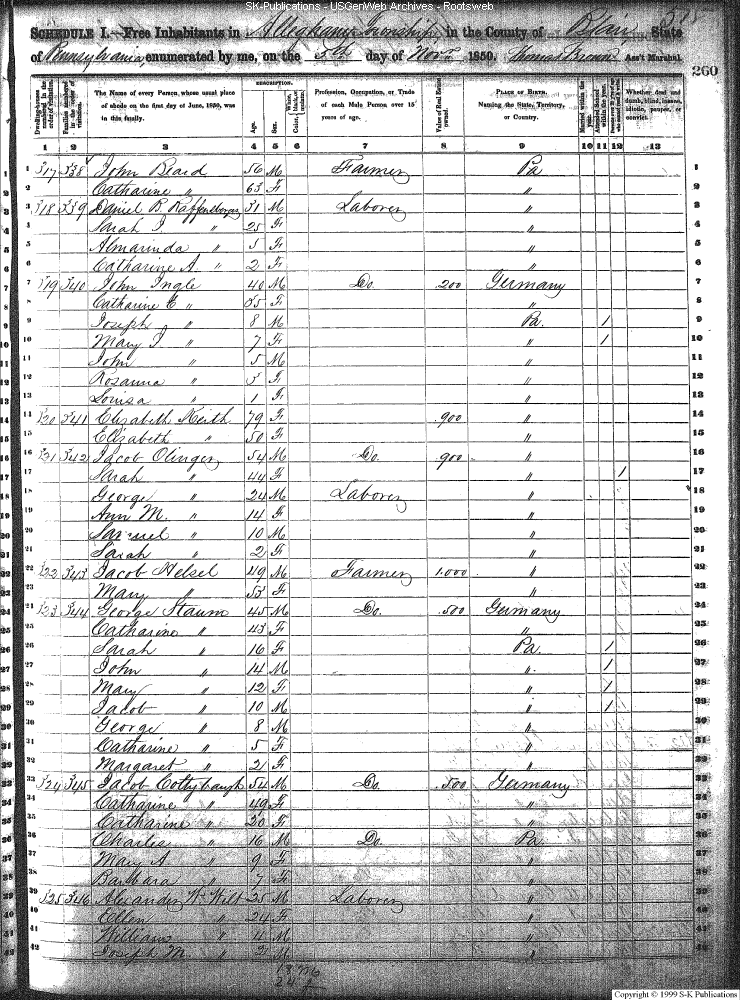 SK-Publications - USGenWeb Archives - Rootsweb
518
SCHEDULE I.—Free Inhabitants in Allegheny Township in the County of Blair State
of Pennsylvania enumerated by me, on the 5th day of Novr 1850. Thomas Ass't Marshal.
260
Dwelling-houses numbered in the order of visitation.
Families numbered in the order of visitation.
The Name of every Person whose usual place of abode on the first day of June, 1850, was in this family.
DESCRIPTION.
Age.
Sex.
Color, White, black, or mulatto.
Profession, Occupation, or Trade of each Male Person over 15 years of age.
Value of Real Estate owned.
PLACE OF BIRTH. Naming the State, Territory, or Country.
Married within the year.
Attended School within the year.
Persons over 20 y'rs of age who cannot read & write.
Whether deaf and dumb, blind, insane, idiotic, pauper, or convict.
1 2 3 4 5 6 7 8 9 10 11 12 13
1 317 338 John Beard 56 M Farmer Pa 1
2 Catharine " 63 F " 2
3 318 339 Daniel B. 31 M Laborer " 3
4 Sarah J " 25 F " 4
5 Almarinda " 5 F " 5
6 Catharine A. " 2 F " 6
7 319 340 John Ingle 40 M Do. 200 Germany 7
8 Catharine E " 35 F " 8
9 Joseph " 8 M Pa. / 9
10 Mary J. " 7 F " / 10
11 John " 5 M " 11
12 Rosanna " 3 F " 12
13 Louisa " 1 F " 13
14 320 341 Elizabeth Keith 79 F 900 " 14
15 Elizabeth " 50 F " 15
16 321 342 Jacob Olinger 54 M Do. 900 " 16
17 Sarah " 44 F " / 17
18 George " 24 M Laborer " 18
19 Ann M. " 14 F " 19
20 Samuel " 10 M " 20
21 Sarah " 2 F " 21
22 322 343 Jacob Helsel 49 M Farmer 1.000 " 22
23 Mary " 53 F " 23
24 323 344 George Staum 45 M Do. 500 Germany 24
25 Catharine " 43 F " 25
26 Sarah " 16 F Pa. / 26
27 John " 14 M " / 27
28 Mary " 12 F " / 28
29 Jacob " 10 M " / 29
30 George " 8 M " 30
31 Catharine " 5 F " 31
32 Margaret " 2 F " 32
33 324 345 Jacob Cottybaugh 54 M Do. 500 Germany 33
34 Catharine " 49 F " 34
35 Catharine " 20 F " 35
36 Charles " 16 M Do. Pa. 36
37 Mary A " 9 F " 37
38 Barbara " 7 F " 38
39 325 346 Alexander W. Wilt 25 M Laborer " 39
40 Ellen " 24 F " 40
41 William " 4 M " 41
42 Joseph M " 2 M " 42
Copyright © 1999 S-K Publications